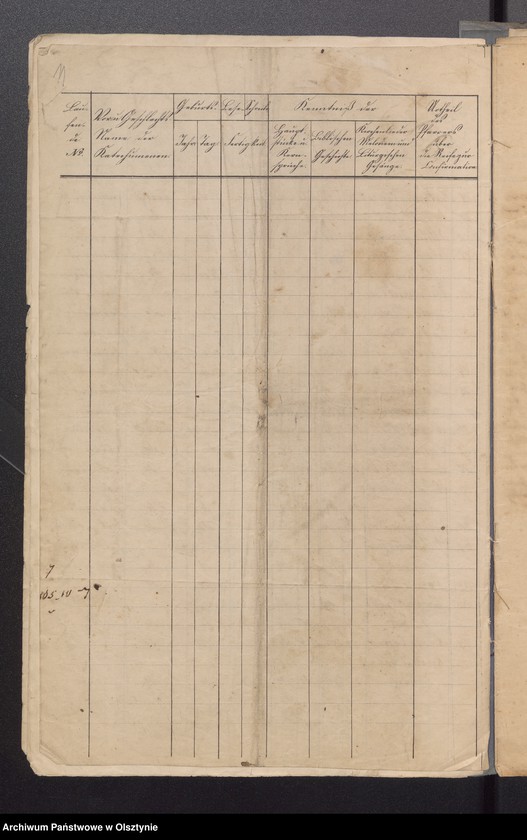 Lau-
fen-
de
No.
Vor u. Geschlechts
Name der
Katechumenen
Geburts
Jahr Tag
Lese Schreib
Fertigkeit
Kenntniß der
Haupt
stücke u
Kern-
sprüche
Biblischen
Geschichte
Kirchenlieder
Melodien und
Liturgischen
Gesänge
Urtheil
des
Pfarrers
über
die Reife zur
Confirmation
7
Archiwum Państwowe w Olsztynie